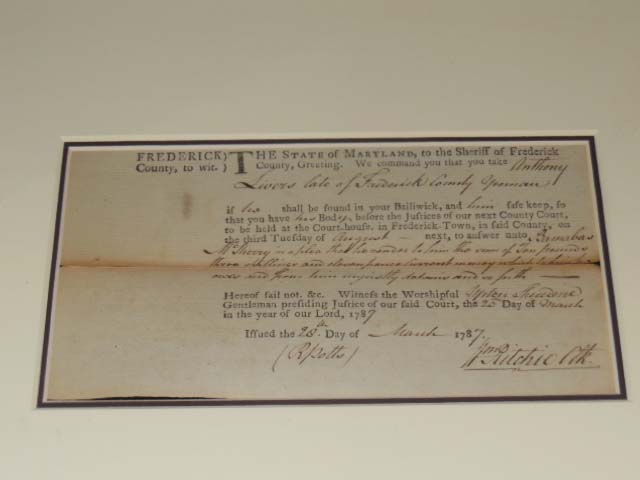 FREDERICK) THE STATE of MARYLAND, to the Sheriff of Frederick
County, to wit.) County, Greeting. We command you that you take Anthony
Livers late of Frederick County Yeoman
if he shall be found in your Bailiwick, and him safe keep, so
that you have his Body, before the Justices of our next County Court,
to be held at the Court-house, in Frederick-Town, in said County, on
the third Tuesday of August next, to answer unto Barnabas
in a plea that he render to him the sum of Ten pounds
three shillings and eleven pence current money which to him he
owes and from him unjustly detains and so forth
Hereof fail not, &c. Witness the Worshipful Upton Sheredine
Gentleman presiding Justice of our said Court, the Day of March
in the year of our Lord, 1787
Issued the 28th Day of March 1787.
(R Potts) Wm Ritchie Clk